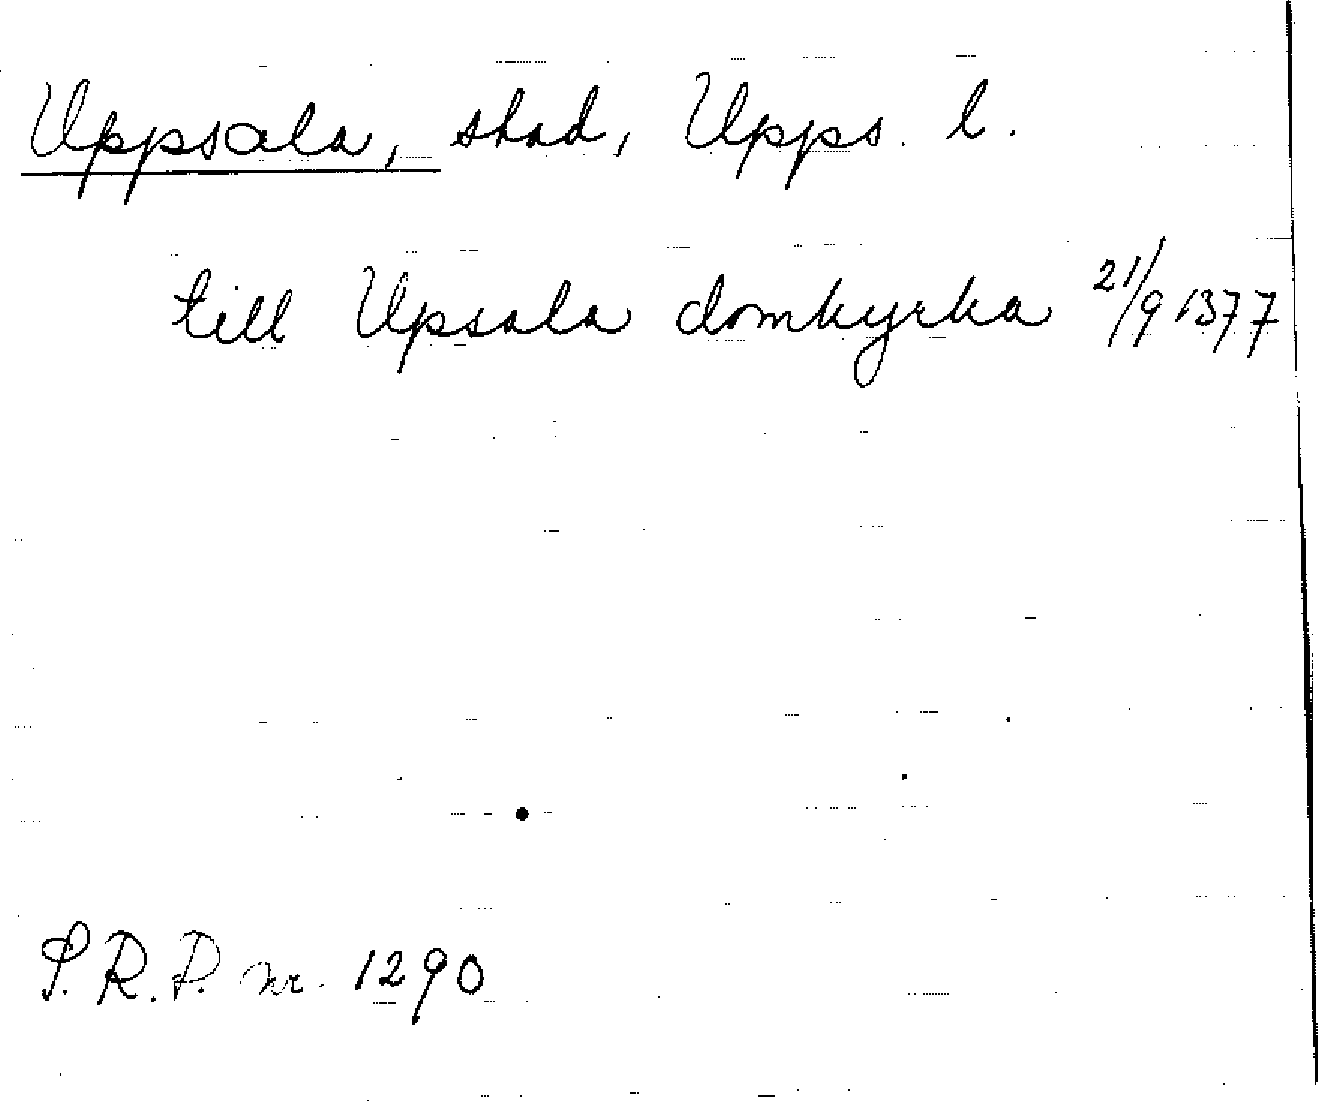 Uppsala, stad, Upps. l.
till Upsala domkyrka 21/9 1377
S.R.P. nr. 1290